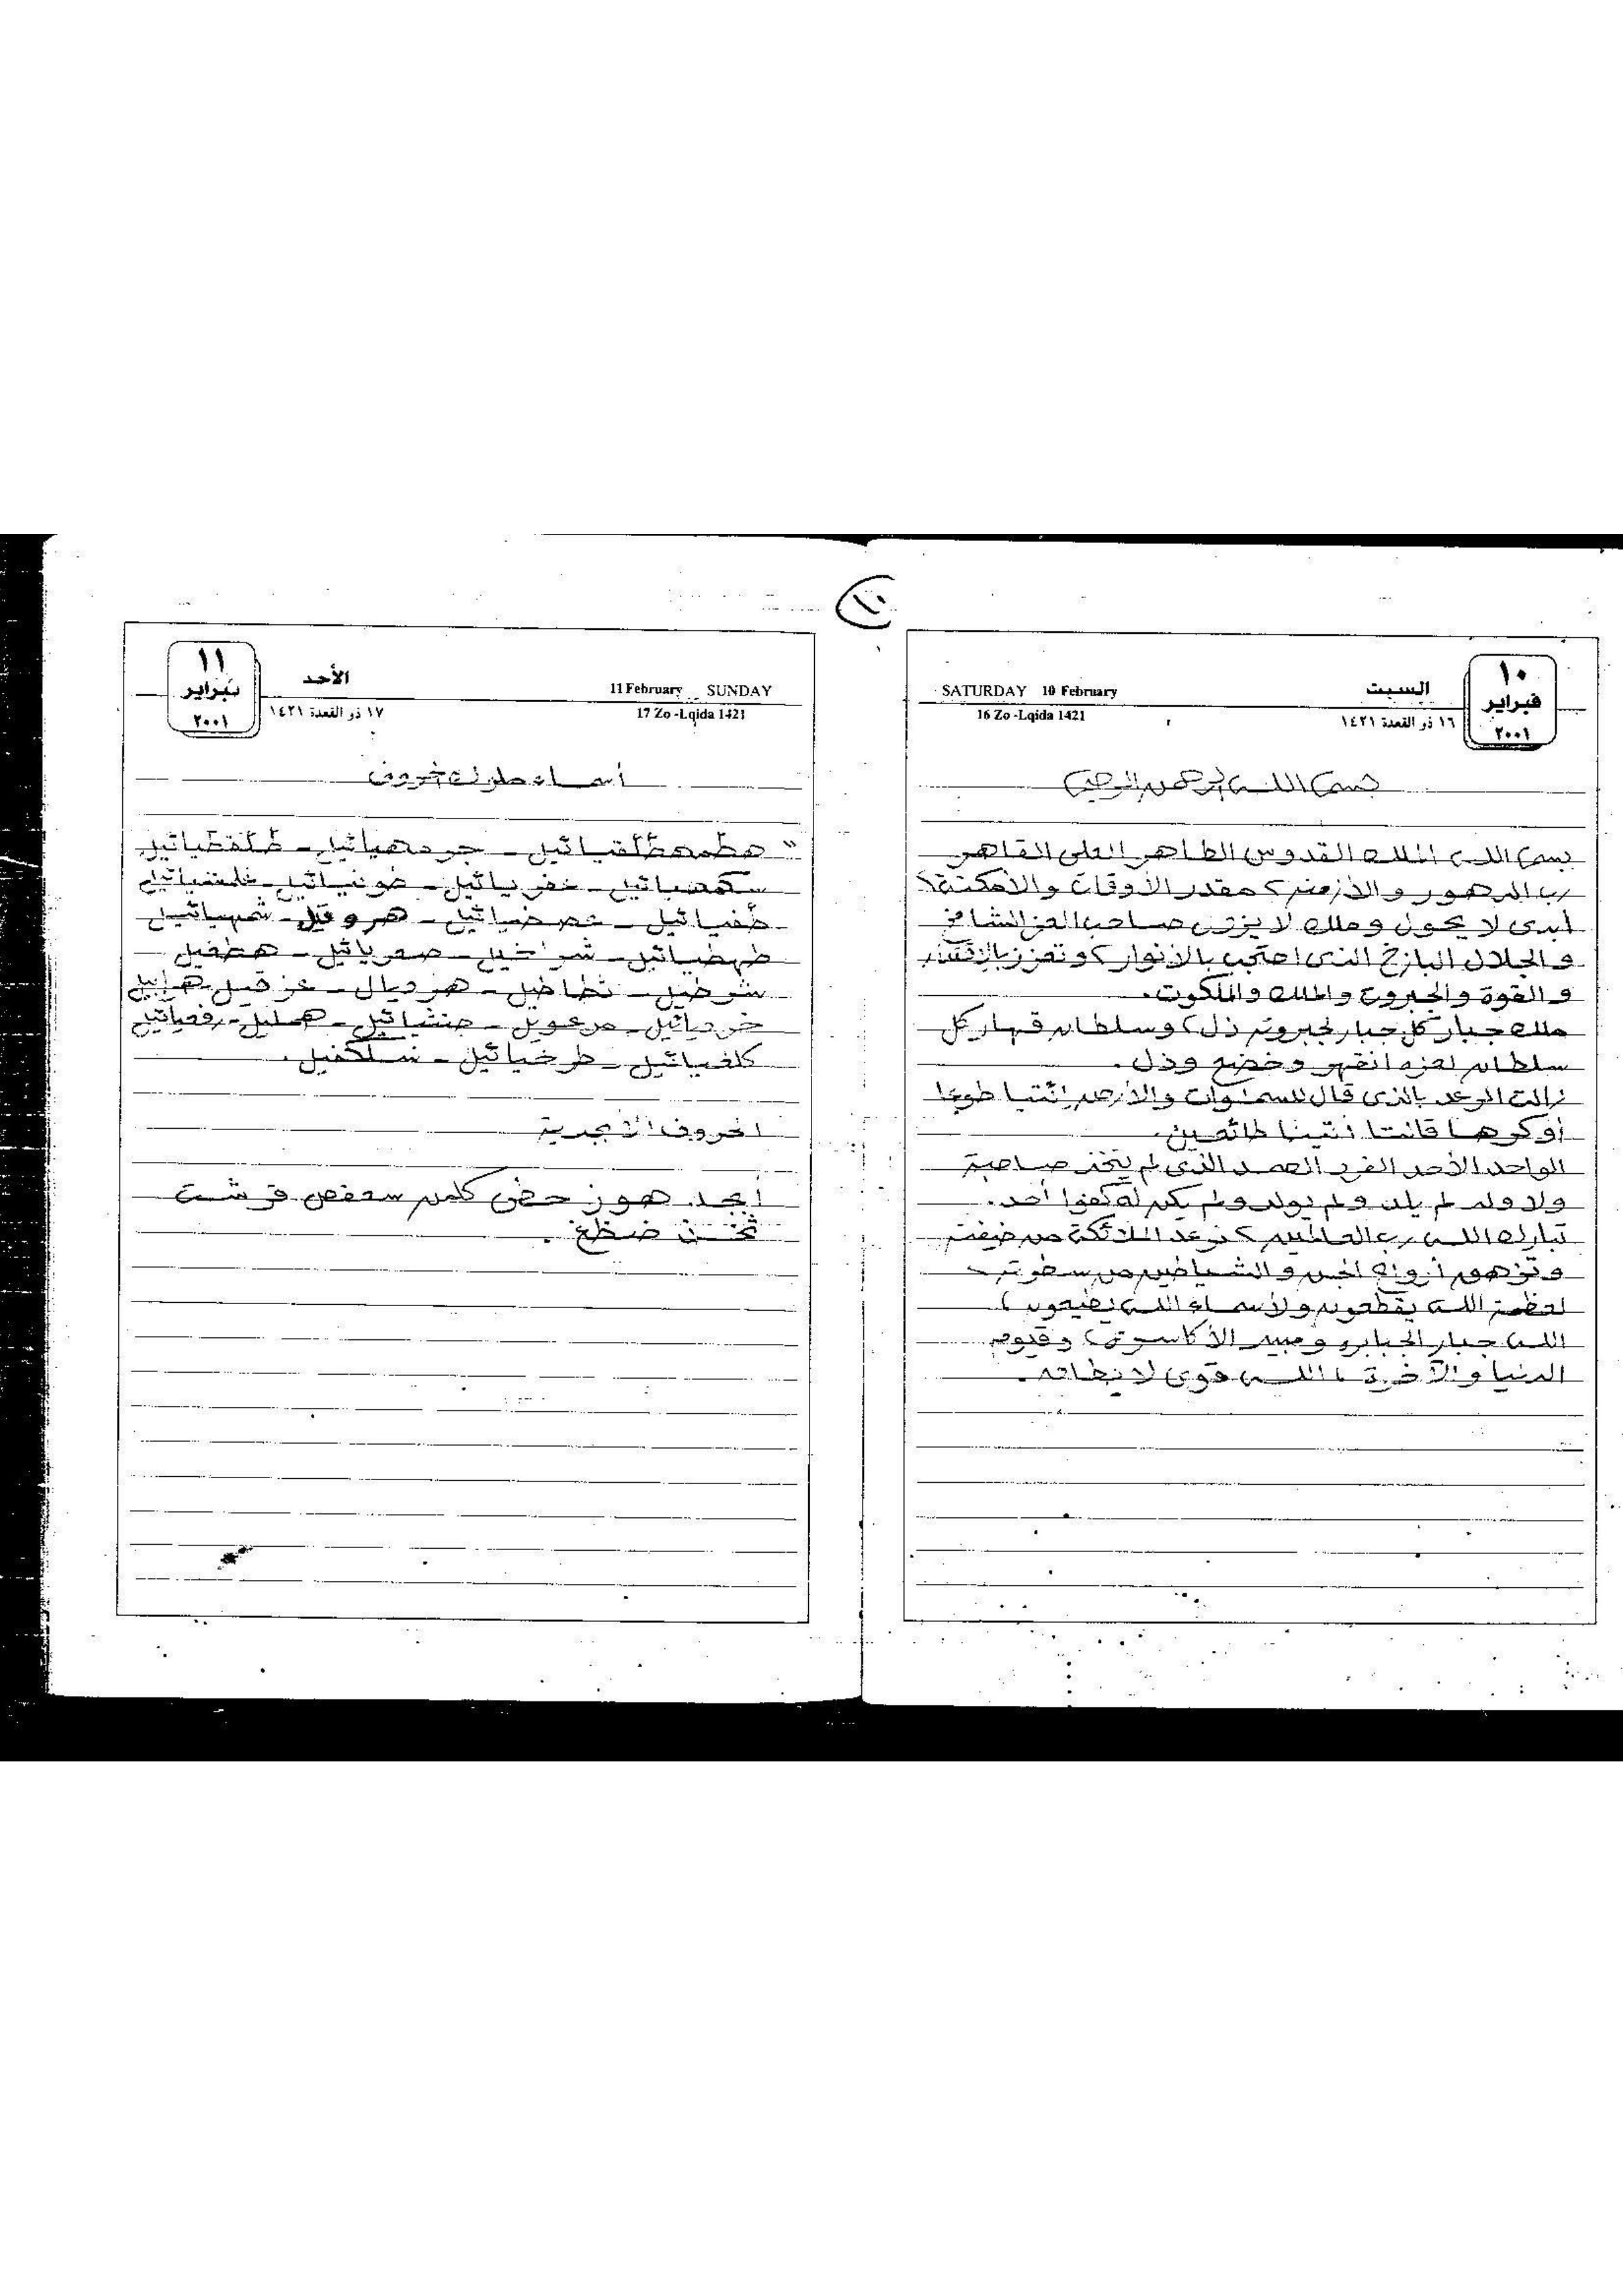 ١٠
١٠
فبراير
٢٠٠١
السبت
SATURDAY 10 February
١٦ ذو القعدة ١٤٢١
16 Zo -Lqida 1421
بسم الله الرحمن الرحيم
بسم الله الملك القدوس الطاهر العلى القاهر
رب الدهور والأزمنه مقدر الأوقات والأمكنة
أبدى لا يحول وملك لا يزول صاحب العز الشامخ
والجلال البازخ الذى احتجب بالأنوار وتعزز بالإقتدار
والقوة والجبروت والملك والملكوت.
ملك جبار كل جبار لجبروته ذل وسلطان قهار كل
سلطان لعزه انقهر وخضع وذل.
بالذى قال للسموات والأرض إئتيا طوعا
أو كرها قالتا أتينا طائعين.
الواحد الأحد الفرد الصمد الذى لم يتخذ صاحبة
ولا ولد لم يلد ولم يولد ولم يكن له كفوا أحد.
تبارك الله رب العالمين ترعد الملائكة من خيفته
وتزهق أرواح الجن والشياطين من سطوته
لعظمة الله ولأسماء الله يطيعون
الله جبار الجبابره ومبيد الأكاسرة وقيوم
الدنيا والآخرة الله قوى لا يطاق.
١١
فبراير
٢٠٠١
الأحد
11 February SUNDAY
١٧ ذو القعدة ١٤٢١
17 Zo -Lqida 1421
أسماء ملوك الحروف
" هطمهطلفيائيل - جرمهيائيل - طلقطيائيل
سكمهيائيل - عفريائيل - خونيائيل
طفيائيل - عصضيائيل - هروقيل - شمهيائيل
طهطيائيل - شراخيل - صعريائيل - هطفيل
شوخيل - نطاطيل - هرديال - عزقيل - هرابيل
خرديائيل - مرعويل - منشيائيل - هليل - رفعيائيل
كلفيائيل - طرخيائيل - نسلكفيل.
الحروف الأبجدية
أبجد هوز حطى كلمن سعفص قرشت
ثخذ ضظغ.